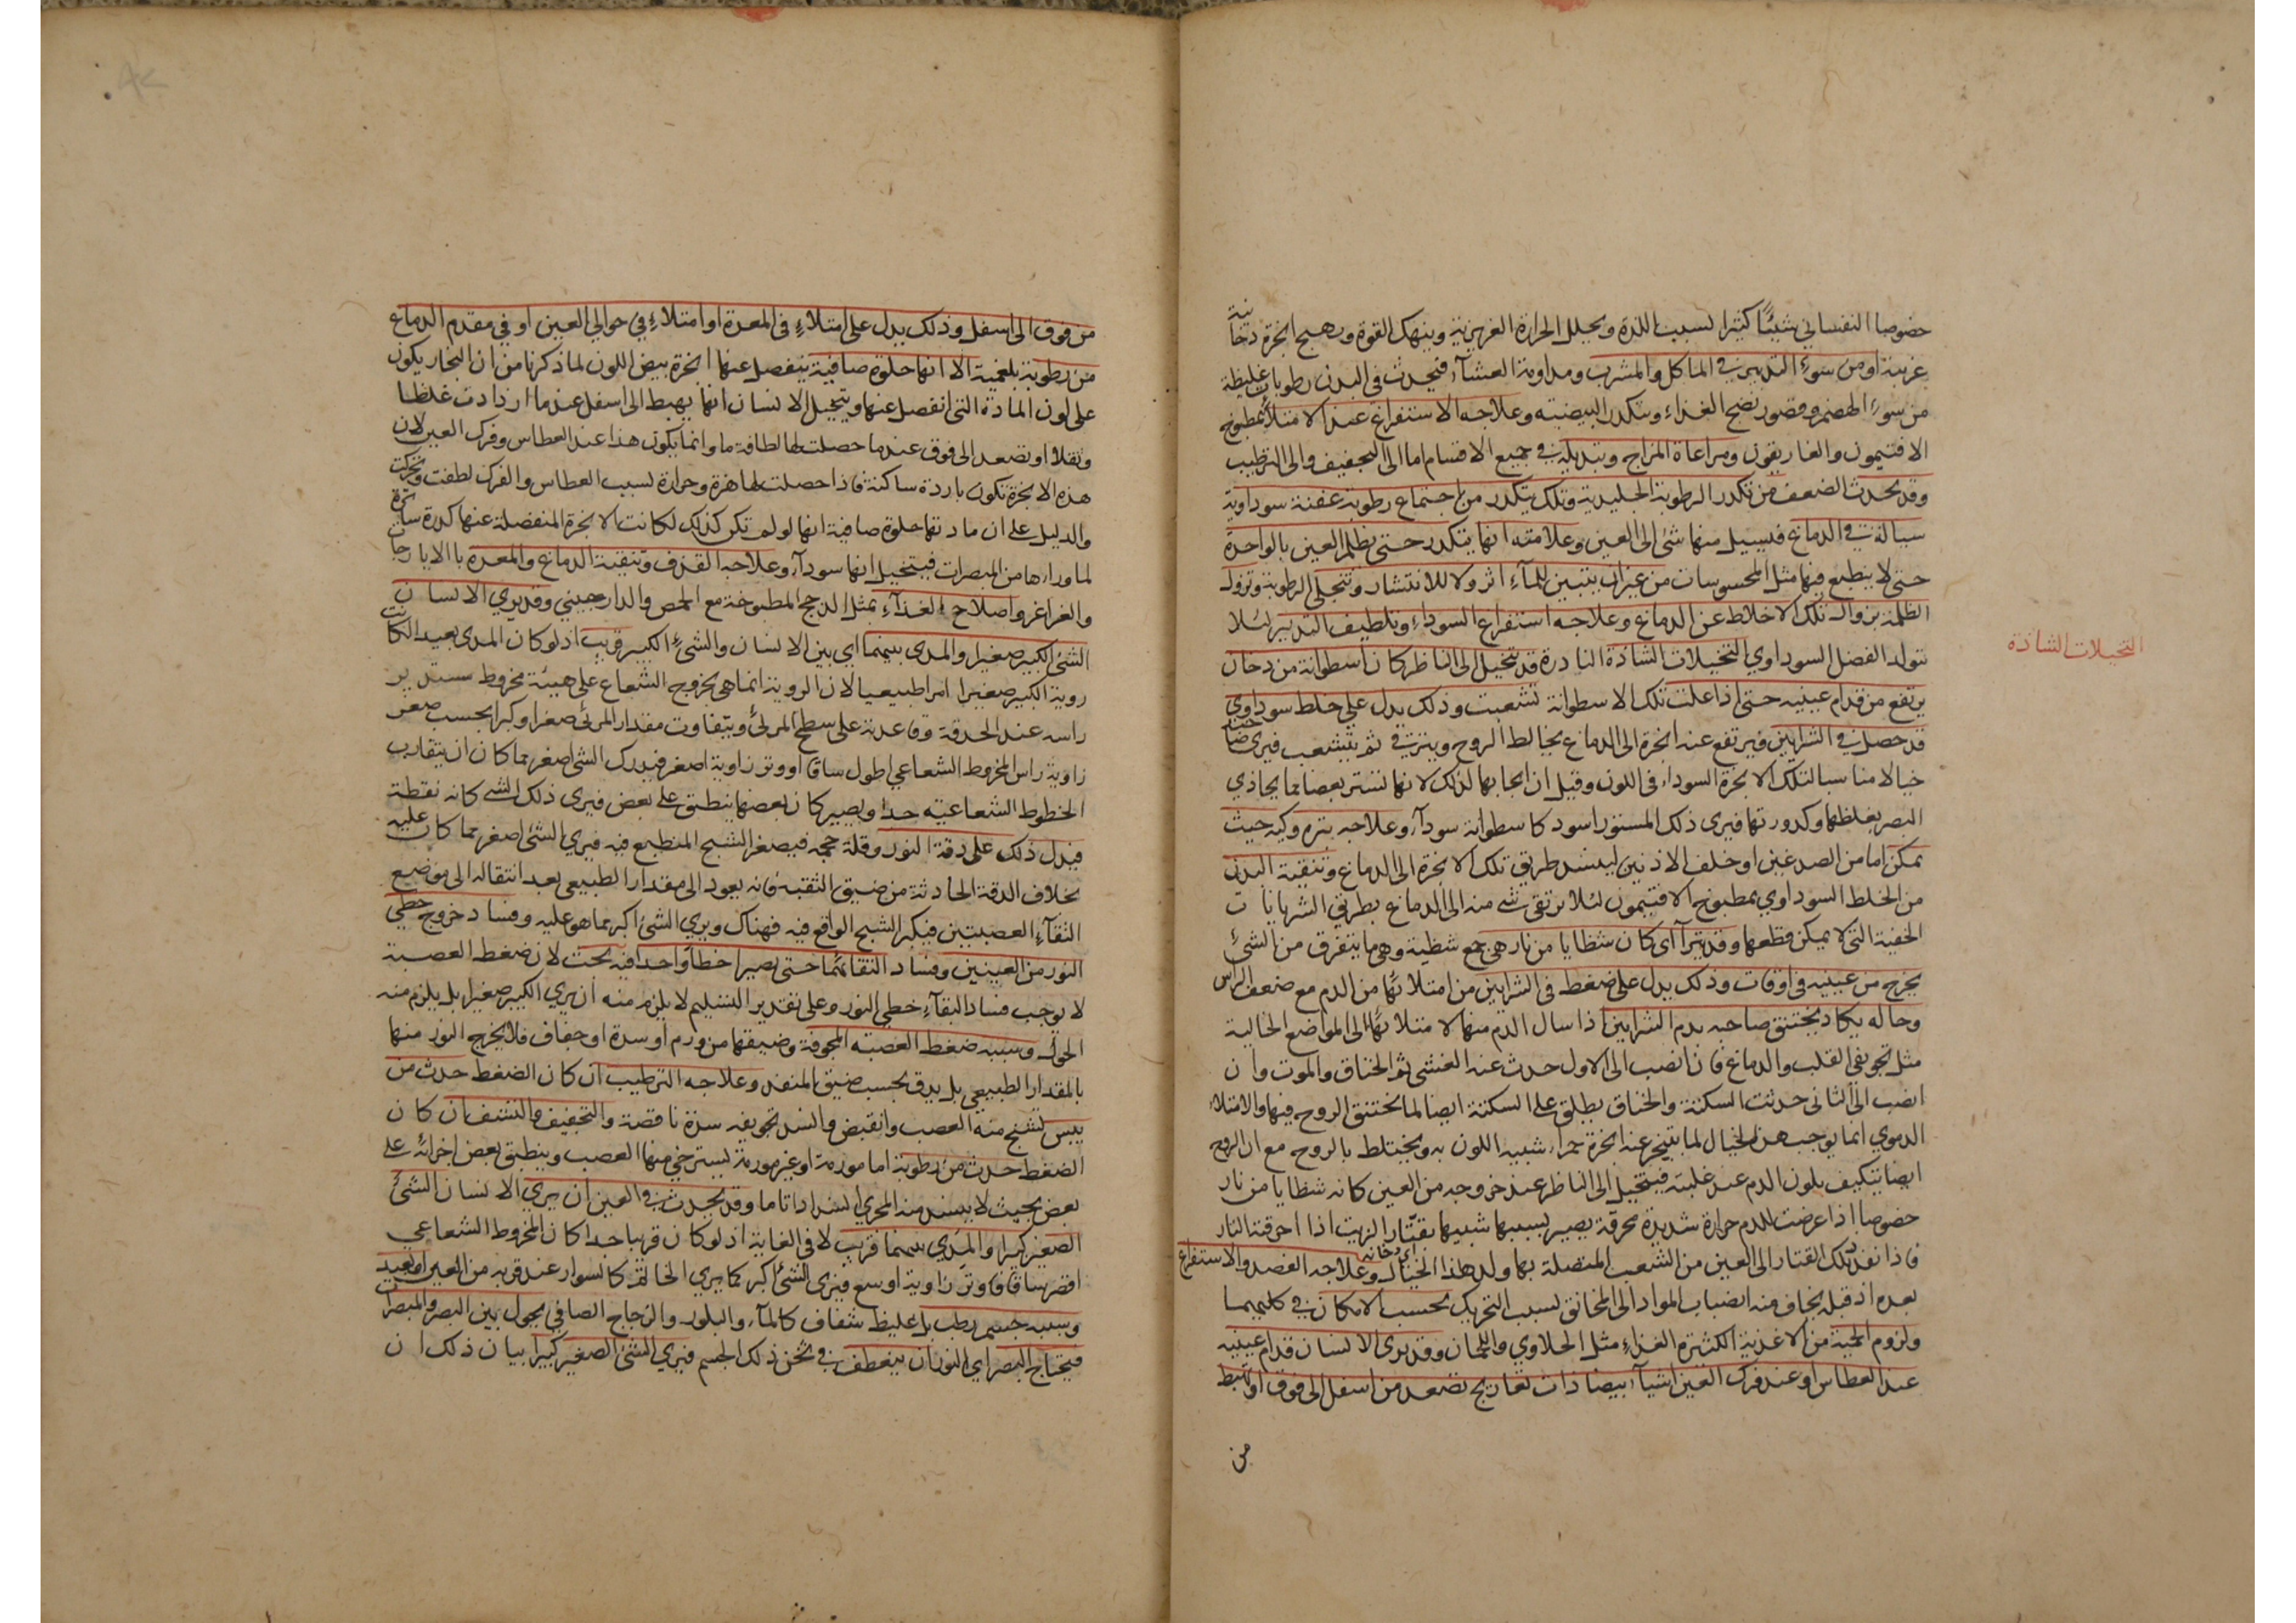 خصوصا النفساني شيئا كثيرا لسبب اللذة ويحلل الحرارة الغريزية وينهك القوة ويهيج ابخرة دخانية
غريبة او من سوء التدبير في الماكل والمشرب ومداومة العشاء فيحدث في البدن رطوبات غليظة
من سوء الهضم وقصور نضج الغذاء وتكدر البيضية وعلاجه الاستفراغ عند الامتلاء بمطبوخ
الافتيمون والغاريقون ومراعاة المزاج وتبديله في جميع الاقسام اما الى التجفيف والى الترطيب
وقد يحدث الضعف من تكدر الرطوبة الجليدية وتلك يتكدر من اجتماع رطوبة عفنة سوداوية
سيالة في الدماغ فيسيل منها شئ الى العين وعلامته انها يتكدر حتى يظلم العين بالواحدة
حتى لا ينطبع فيها مثل المحسوسات من غير ان يتبين للماء اثر ولا للانتشار وتتجلى الرطوبة وتزول
الظلمة بزوال تلك الاخلاط عن الدماغ وعلاجه استفراغ السوداء وتلطيف التدبير لئلا
يتولد الفضل السوداوي التخيلات الشاذة النادرة قد يتخيل الى الناظر كان اسطوانة من دخان
التخيلات الشاذة
يرتفع من قدام عينيه حتى اذا علت تلك الاسطوانة تشعبت وذلك يدل على خلط سوداوي
قد حصل في الشرايين فيرتفع عنه ابخرة الى الدماغ يخالط الروح ويترقى ثم يتشعب فيرى
خيالا مناسبا لتلك الابخرة السوداء في اللون وقيل ان ايجابها لذلك لانها تستر بعضا مما يحاذي
البصر بغلظها وكدورتها فيرى ذلك المستور اسود كاسطوانة سوداء وعلاجه بتره وكيه حيث
يمكن اما من الصدغين او خلف الاذنين لينسد طريق تلك الابخرة الى الدماغ وتنقية البدن
من الخلط السوداوي بمطبوخ الافتيمون لئلا يرتقى شئ منه الى الدماغ بطريق الشريانات
الخفية التي لا يمكن قطعها وقد يترآاى كان شظايا من نار هي جمع شظية وهي ما يتفرق من الشئ
يخرج من عينيه في اوقات وذلك يدل على ضغط في الشرايين من امتلائها من الدم مع ضعف الراس
وحاله يكاد يختنق صاحبه بدم الشرايين اذا سال الدم منها لامتلائها الى المواضع الخالية
مثل تجويفي القلب والدماغ فان انصب الى الاول حدث عنه الغشي ثم الخناق والموت وان
انصب الى الثاني حدثت السكتة والخناق يطلق على السكتة ايضا لما يختنق الروح فيها والامتلاء
الدموي انما يوجب هذا الخيال لما يتبخر عنه ابخرة حمراء شبيه اللون به ويختلط بالروح مع ان الروح
ايضا يتكيف بلون الدم عند غلبته فيتخيل الى الناظر عند خروجه من العين كانه شظايا من نار
خصوصا اذا عرضت للدم حرارة شديدة محرقة يصير بسببها شبيها بقتار الزيت اذا احرقته النار
اي دخانه
فاذا نفذ تلك القتار الى العين من الشعب المتصلة بها ولد هذا الخيال وعلاجه الفصد والاستفراغ
بعده اذ قبله يخاف منه انصباب المواد الى المخانق لسبب التحريك بحسب الامكان في كليهما
ولزوم الحمية من الاغذية الكثيرة الغذاء مثل الحلاوي واللحمان وقد يرى الانسان قدام عينيه
عند العطاس او عند فرك العين اشياء بيضا ذات تعاريج تصعد من اسفل الى فوق او تهبط
من
من فوق الى اسفل وذلك يدل على امتلاء في المعدة او امتلاء في حوالي العين او في مقدم الدماغ
من رطوبة بلغمية الا انها حلوة صافية ينفصل عنها ابخرة بيض اللون لما ذكرنا من ان البخار يكون
على لون المادة التي انفصل عنها ويتخيل الانسان انها يهبط الى اسفل عندما ازدادت غلظا
وثقلا او تصعد الى فوق عندما حصلت لها لطافة ما وانما يكون هذا عند العطاس وفرك العين لان
هذه الابخرة تكون باردة ساكنة فاذا حصلت لها هزة وحرارة لسبب العطاس والفرك لطفت وتحركت
والدليل على ان مادتها حلوة صافية انها لو لم تكن كذلك لكانت الابخرة المنفصلة عنها كدرة ساترة
لما وراءها من المبصرات فيتخيل انها سوداء وعلاجه القذف وتنقية الدماغ والمعدة بالايارجات
والغراغر واصلاح الغذاء بمثل الدجج المطبوخة مع الحمص والدارصيني وقد يري الانسان
الشئ الكبير صغيرا والمدى بينهما اي بين الانسان والشئ الكبير قريب اذ لو كان المدى بعيدا لكانت
روية الكبير صغيرا امرا طبيعيا لان الروية انما هي بخروج الشعاع على هيئة مخروط مستدير
راسه عند الحدقة وقاعدته على سطح المرئي ويتفاوت مقدار المرئي صغرا وكبرا بحسب صغر
زاوية راس المخروط الشعاعي اطول ساقا ووتر زاوية اصغر فيدرك الشئ اصغر مما كان ان يتقارب
الخطوط الشعاعية جدا ويصير كان بعضها ينطبق على بعض فيرى ذلك الشئ كانه نقطة
فيدل ذلك على دقة النور وقلة حجمه فيصغر الشبح المنطبع فيه فيري الشئ اصغر مما كان عليه
بخلاف الدقة الحادثة من ضيق الثقبة فانه يعود الى مقدار الطبيعي بعد انتقاله الى موضع
التقاء العصبتين فيكبر الشبح الواقع فيه فهناك ويري الشئ اكبر مما هو عليه وفساد خروج خطي
النور من العينين وفساد التقائهما حتى يصيرا خطا واحدا فيه بحث لان ضغط العصبة
لا يوجب فساد التقاء خطي النور وعلى تقدير التسليم لا يلزم منه ان يري الكبير صغيرا بل يلزم منه
الحول وسببه ضغط العصبة المجوفة وضيقها من ورم او سدة او جفاف فلا يخرج النور منها
بالمقدار الطبيعي بل يدق بحسب ضيق المنفذ وعلاجه الترطيب ان كان الضغط حدث من
يبس تشنج منه العصب وانقبض وانسد تجويفه سدة ناقصة والتجفيف والنشف ان كان
الضغط حدث من رطوبة اما مورمة او غير مورمة يسترخي منها العصب وينطبق بعض اجزائه على
بعض بحيث لا ينسد منه المجرى انسدادا تاما وقد يحدث في العين ان يري الانسان الشئ
الصغير كبيرا والمدي بينهما قريب لا في الغاية اذ لو كان قريبا جدا كان المخروط الشعاعي
اقصر ساقا ووتر زاوية اوسع فيرى الشئ اكبر كما يري الخاتم كالسوار عند قربه من العين او بعيد
وسببه جسم رطب بل غليظ شفاف كالماء والبلور والزجاج الصافي يحول بين البصر والمبصرات
فيحتاج البصر اي النور ان ينعطف في ثخن ذلك الجسم فيري الشئ الصغير كبيرا بيان ذلك ان